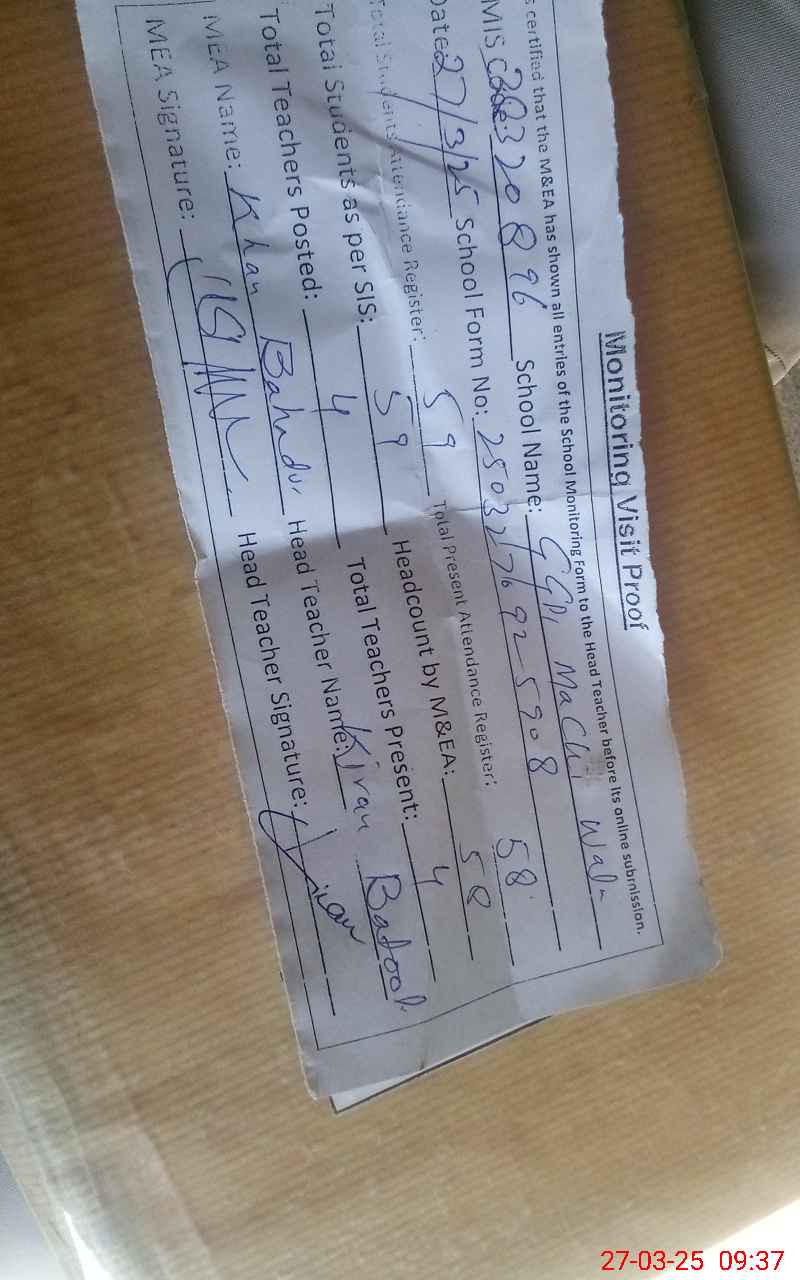 Monitoring Visit Proof
s certified that the M&EA has shown all entries of the School Monitoring Form to the Head Teacher before its online submission.
MIS School Name: GGPS Machi Wala
Date: 27/3/25 School Form No: 2503276925908
Total Students Attendance Register: 59 Total Present Attendance Register: 58
Total Students as per SIS: 59 Headcount by M&EA: 58
Total Teachers Posted: 4 Total Teachers Present: 4
MEA Name: Khan Bahadur Head Teacher Name: Kiran Batool
MEA Signature: Head Teacher Signature: Kiran
27-03-25 09:37